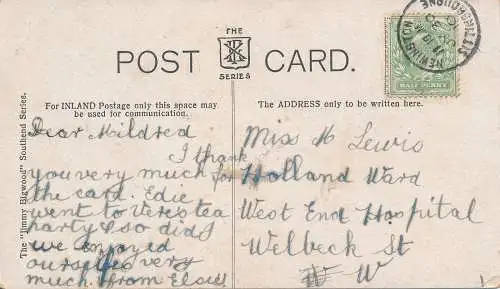 THE
POST CARD.
SERIES
HALF PENNY
For INLAND Postage only this space may
be used for communication.
The ADDRESS only to be written here.
The "Jimmy Bigwood" Southend Series.
Dear Mildred
I thank
you very much for
the card. Edie
went to Vere's tea
party & so did
we enjoyed
ourselves very
much. from Elsie
Miss M Lewis
Holland Ward
West End Hospital
Welbeck St
W